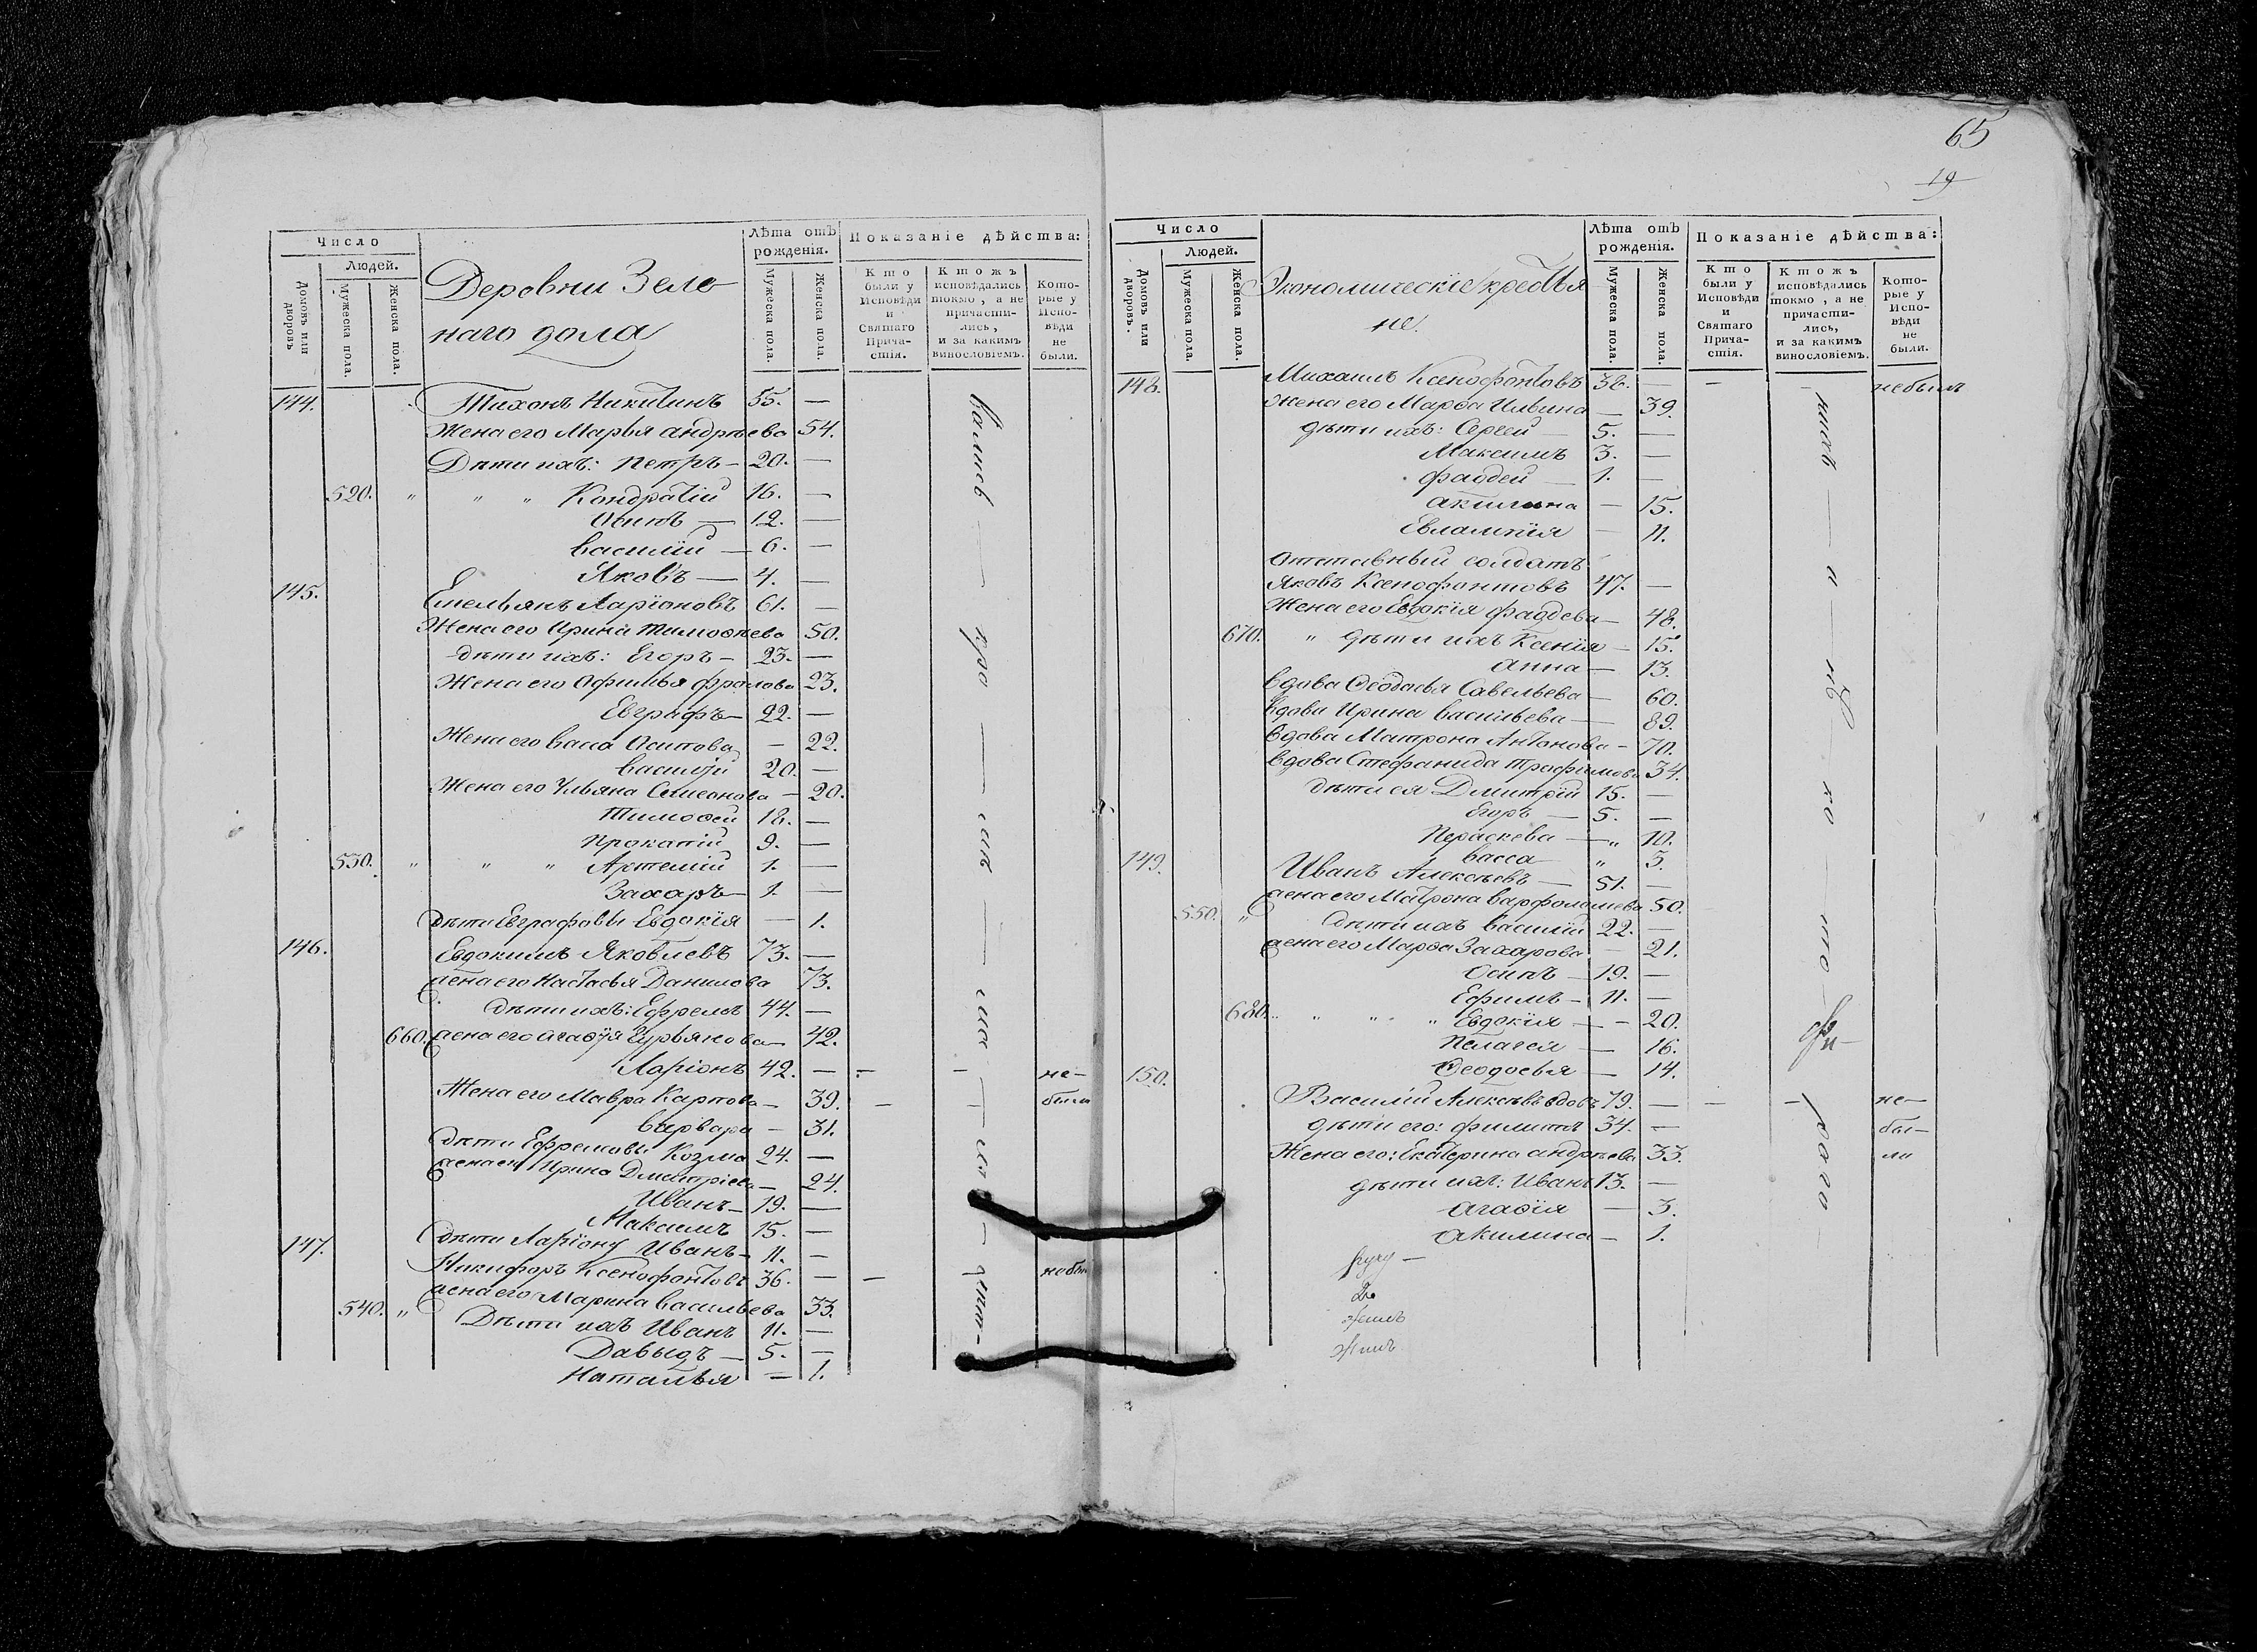 65
19
Число
Людей.
Домовъ или дворовъ
Мужеска пола.
Женска пола.
Деревни Зеле
наго дола
Лѣта отъ рожденія.
Мужеска пола.
Женска пола.
Показаніе дѣйства:
Кто были у Исповѣди и Святаго Прича-стія.
Ктожъ исповѣдались токмо, а не причасти-лись, и за какимъ винословіемъ.
Кото-рые у Испо-вѣди не были.
144. Тихонъ Никитинъ 55. —
Жена его Марья андрѣева 54.
Дѣти ихъ: Петръ — 20. —
520. " " " Кондратій 16. —
Осипъ — 12. —
василій — 6. —
Яковъ — 4. —
145. Емельянъ Ларіоновъ 61. —
Жена его Ирина тимоѳѣева 50.
дѣти ихъ: Егоръ — 23. —
Жена его Афимья фролова 23.
Евграфъ — 22. —
Жена его васа Осипова — 22.
василій 20. —
Жена его Ульяна Симеонова — 20.
Тимоѳей 18. —
Прокопій 9. —
530. " " " Артемій 1. —
Захаръ — 1. —
дѣти Евграфовы Евдокія — 1.
146. Евдокимъ Яковлевъ 73. —
жена его Настасья Данилова 73.
дѣти ихъ: Ефремъ 44. —
660. жена его агаѳія Гурьянова — 42.
Ларіонъ 42. — — — не-
Жена его Мавра Карпова — 39. — — были
варвара — 31.
дѣти Ефремовы Козма 24. —
жена ег Ирина Дмитріева — 24.
Иванъ — 19. —
Максимъ 15. —
дѣти Ларіону Иванъ — 11. —
147. Никифоръ Ксенофонтовъ 36. — — небы
жена его Марина васильева 33.
540. " Дѣти ихъ Иванъ 11. —
Давыдъ — 5. —
Наталья — 1.
Число
Людей.
Домовъ или дворовъ.
Мужеска пола.
Женска пола.
Экономическіе крестья
не.
Лѣта отъ рожденія.
Мужеска пола.
Женска пола.
Показаніе дѣйства:
Кто были у Исповѣди и Святаго Прича-стія.
Ктожъ исповѣдались токмо, а не причасти-лись, и за какимъ винословіемъ.
Кото-рые у Испо-вѣди не были.
148. Михаилъ Ксенофонтовъ 38. — — — небылъ
жена его Марѳа Ильина — 39.
дѣти ихъ: Сергей — 5. —
Максимъ 3. —
фаддей — 1. —
акилина — 15.
Евлампія — 11.
отставный солдатъ
Яковъ Ксенофонтовъ 47. —
Жена его Евдокія фаддева — 48.
670. " дѣти ихъ Ксенія — 15.
анна — 13.
вдова Ѳеодосья Савельева — 60.
вдова Ирина васильева — 89.
вдова Матрона Антонова — 70.
вдова Стефанида трофимова 34.
дѣти ея Дмитрій 15. —
Егоръ — 5. —
Пераскева — " 10.
васса " 5.
149. Иванъ Алексѣевъ — 51. —
жена его Матрона варфоломеева 50.
550. " дѣти ихъ василій 22. —
жена его Марѳа Захарова — 21.
Осипъ — 19. —
Ефимъ — 11. —
680. " " " " Евдокія — — 20.
Пелагея — 16.
Ѳеодосья — 14.
150. Василій Алексѣевъ вдовъ 79. — — — не-
дѣти его: филиппъ 34. — бы-
Жена его: Екатерина андрѣева 33. ли
дѣти ихъ: Иванъ 13. —
агаѳія — 3.
акилина — 1.